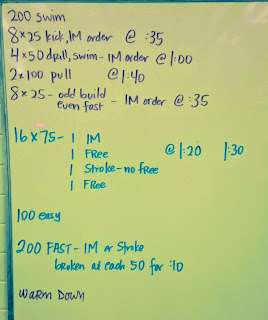 200 swim
8x25 kick, IM order @ :35
4x50 dpull, swim - IM order @ 1:00
2x100 pull @ 1:40
8x25 - odd build
even fast - IM order @ :35
16x75 - 1 IM
1 FRee @ 1:20 1:30
1 Stroke - no free
1 FRee
100 easy
200 FAST - IM or Stroke
broken at each 50 for :10
Warm Down